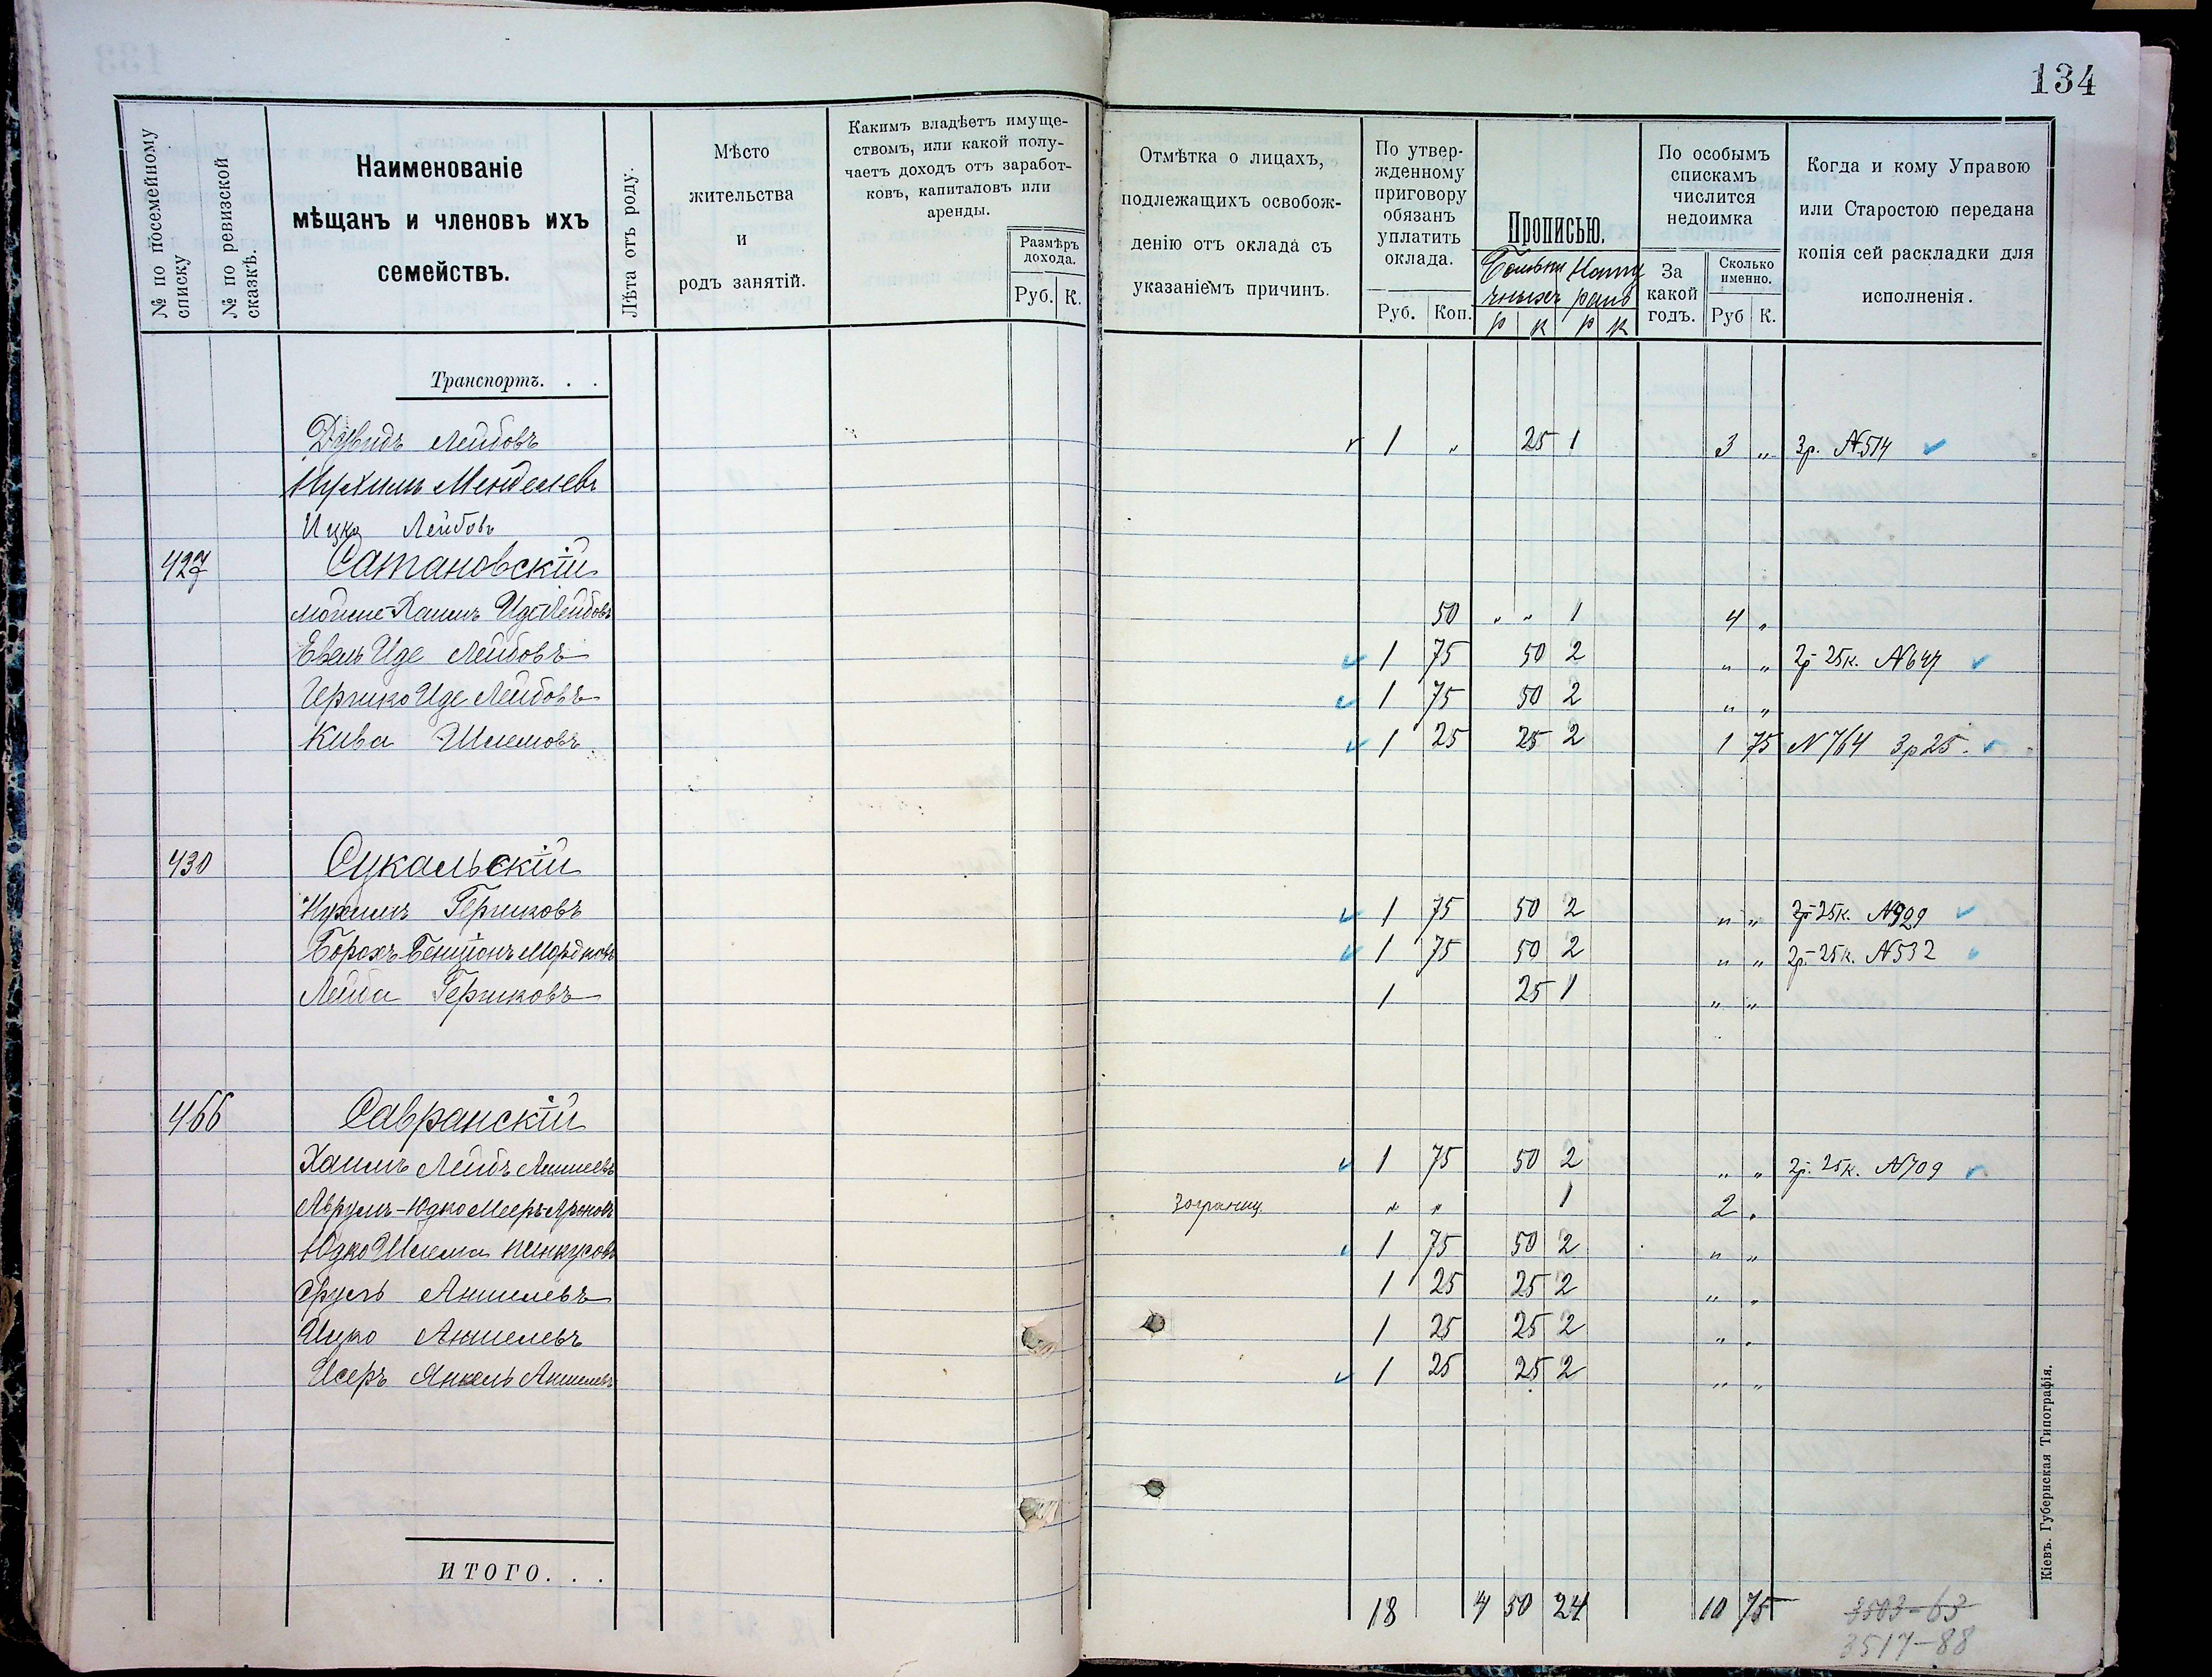 134
№ по посемейному списку
№ по ревизской сказкѣ.
Наименованіе
мѣщанъ и членовъ ихъ
семействъ.
Лѣта отъ роду.
Мѣсто
жительства
и
родъ занятій.
Какимъ владѣетъ имуще-
ствомъ, или какой полу-
чаетъ доходъ отъ заработ-
ковъ, капиталовъ или
аренды.
Размѣръ
дохода.
Руб. К.
Отмѣтка о лицахъ,
подлежащихъ освобож-
денію отъ оклада съ
указаніемъ причинъ.
По утвер-
жденному
приговору
обязанъ
уплатить
оклада.
Руб. Коп.
Прописью.
р к р к
По особымъ
спискамъ
числится
недоимка
За
какой
годъ.
Сколько
именно.
Руб К.
Когда и кому Управою
или Старостою передана
копія сей раскладки для
исполненія.
Транспортъ. . .
Давидъ Лейбовъ 1 „ 25 1 3 „ 3р. №514
Нухимъ Менделевъ
Ицко Лейбовъ
427 Сатановскій
Мойше-Хаимъ Иде Лейбовъ 50 „ „ 1 4 „
Евель Иде Лейбовъ 1 75 50 2 „ „ 2р 25к. №647
Гершко Иде Лейбовъ 1 75 50 2 „ „
Кива Шлемовъ 1 25 25 2 1 75 №764 3р25.
430 Сукальскій
Нухимъ Гершковъ 1 75 50 2 „ „ 2р 25к. №929
Борохъ Бенціонъ Мордковъ 1 75 50 2 „ „ 2р 25к. №532
Лейба Гершковъ 1 25 1 „ „
466 Савранскій
Хаимъ Лейбъ Аншелевъ 1 75 50 2 „ „ 2р. 25к. №709
Аврумъ-Юдко Мееръ Ароновъ Заграниц. „ „ 1 2 „
Юдко Шлема Пинкусовъ 1 75 50 2 „ „
Сруль Аншелевъ 1 25 25 2 „ „
Ицко Аншелевъ 1 25 25 2 „ „
Исеръ Янкель Аншелевъ 1 25 25 2 „ „
ИТОГО. . .
18 4 50 24 10 75
3503-63
3517-88
Кіевъ. Губернская Типографія.